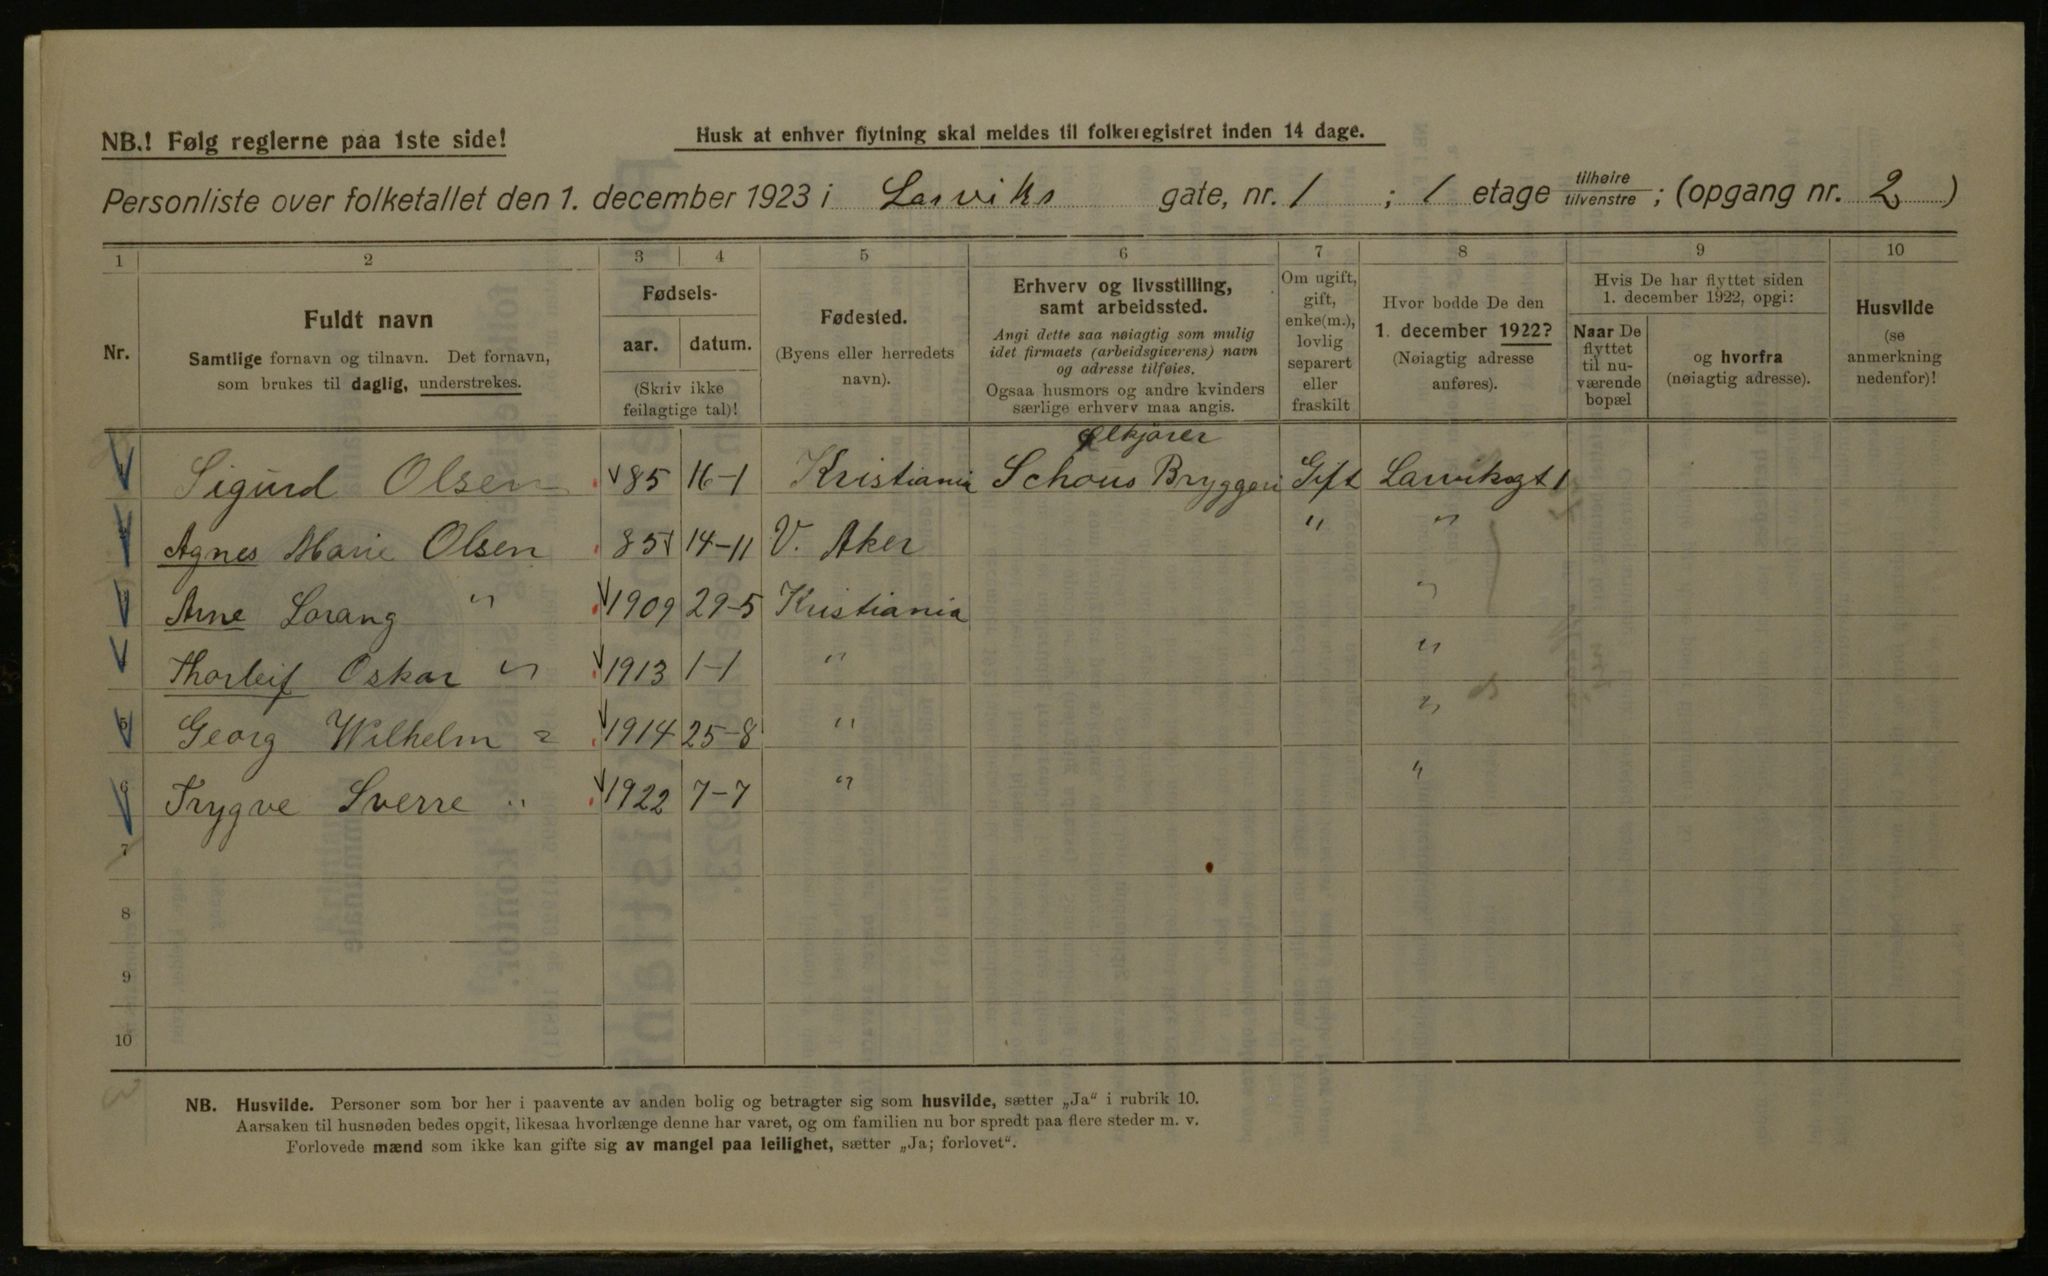 NB.! Følg reglerne paa 1ste side!
Husk at enhver flytning skal meldes til folkeregistret inden 14 dage.
Personliste over folketallet den 1. december 1923 i Larviks gate, nr. 1 ; 1 etage tilhøire tilvenstre ; (opgang nr. 2 )
1 2 3 4 5 6 7 8 9 10
Nr.
Fuldt navn
Samtlige fornavn og tilnavn. Det fornavn,
som brukes til daglig, understrekes.
Fødsels-
aar. datum.
(Skriv ikke
feilagtige tal)!
Fødested.
(Byens eller herredets
navn).
Erhverv og livsstilling,
samt arbeidssted.
Angi dette saa nøiagtig som mulig
idet firmaets (arbeidsgiverens) navn
og adresse tilføies.
Ogsaa husmors og andre kvinders
særlige erhverv maa angis.
Om ugift,
gift,
enke(m.),
lovlig
separert
eller
fraskilt
Hvor bodde De den
1. december 1922?
(Nøiagtig adresse
anføres).
Hvis De har flyttet siden
1. december 1922, opgi:
Naar De
flyttet
til nu-
værende
bopæl
og hvorfra
(nøiagtig adresse).
Husvilde
(se
anmerkning
nedenfor)!
ølkjører
Sigurd Olsen 85 16-1 Kristiania Schous Bryggeri Gift Larviksgt 1
Agnes Marie Olsen 85 14-11 V. Aker " "
Arne Lorang " 1909 29-5 Kristiania "
Thorleif Oskar " 1913 1-1 " "
5 Georg Wilhelm " 1914 25-8 " "
6 Trygve Sverre " 1922 7-7 " "
7
8
9
10
NB. Husvilde. Personer som bor her i paavente av anden bolig og betragter sig som husvilde, sætter „Ja“ i rubrik 10.
Aarsaken til husnøden bedes opgit, likesaa hvorlænge denne har varet, og om familien nu bor spredt paa flere steder m. v.
Forlovede mænd som ikke kan gifte sig av mangel paa leilighet, sætter „Ja; forlovet“.